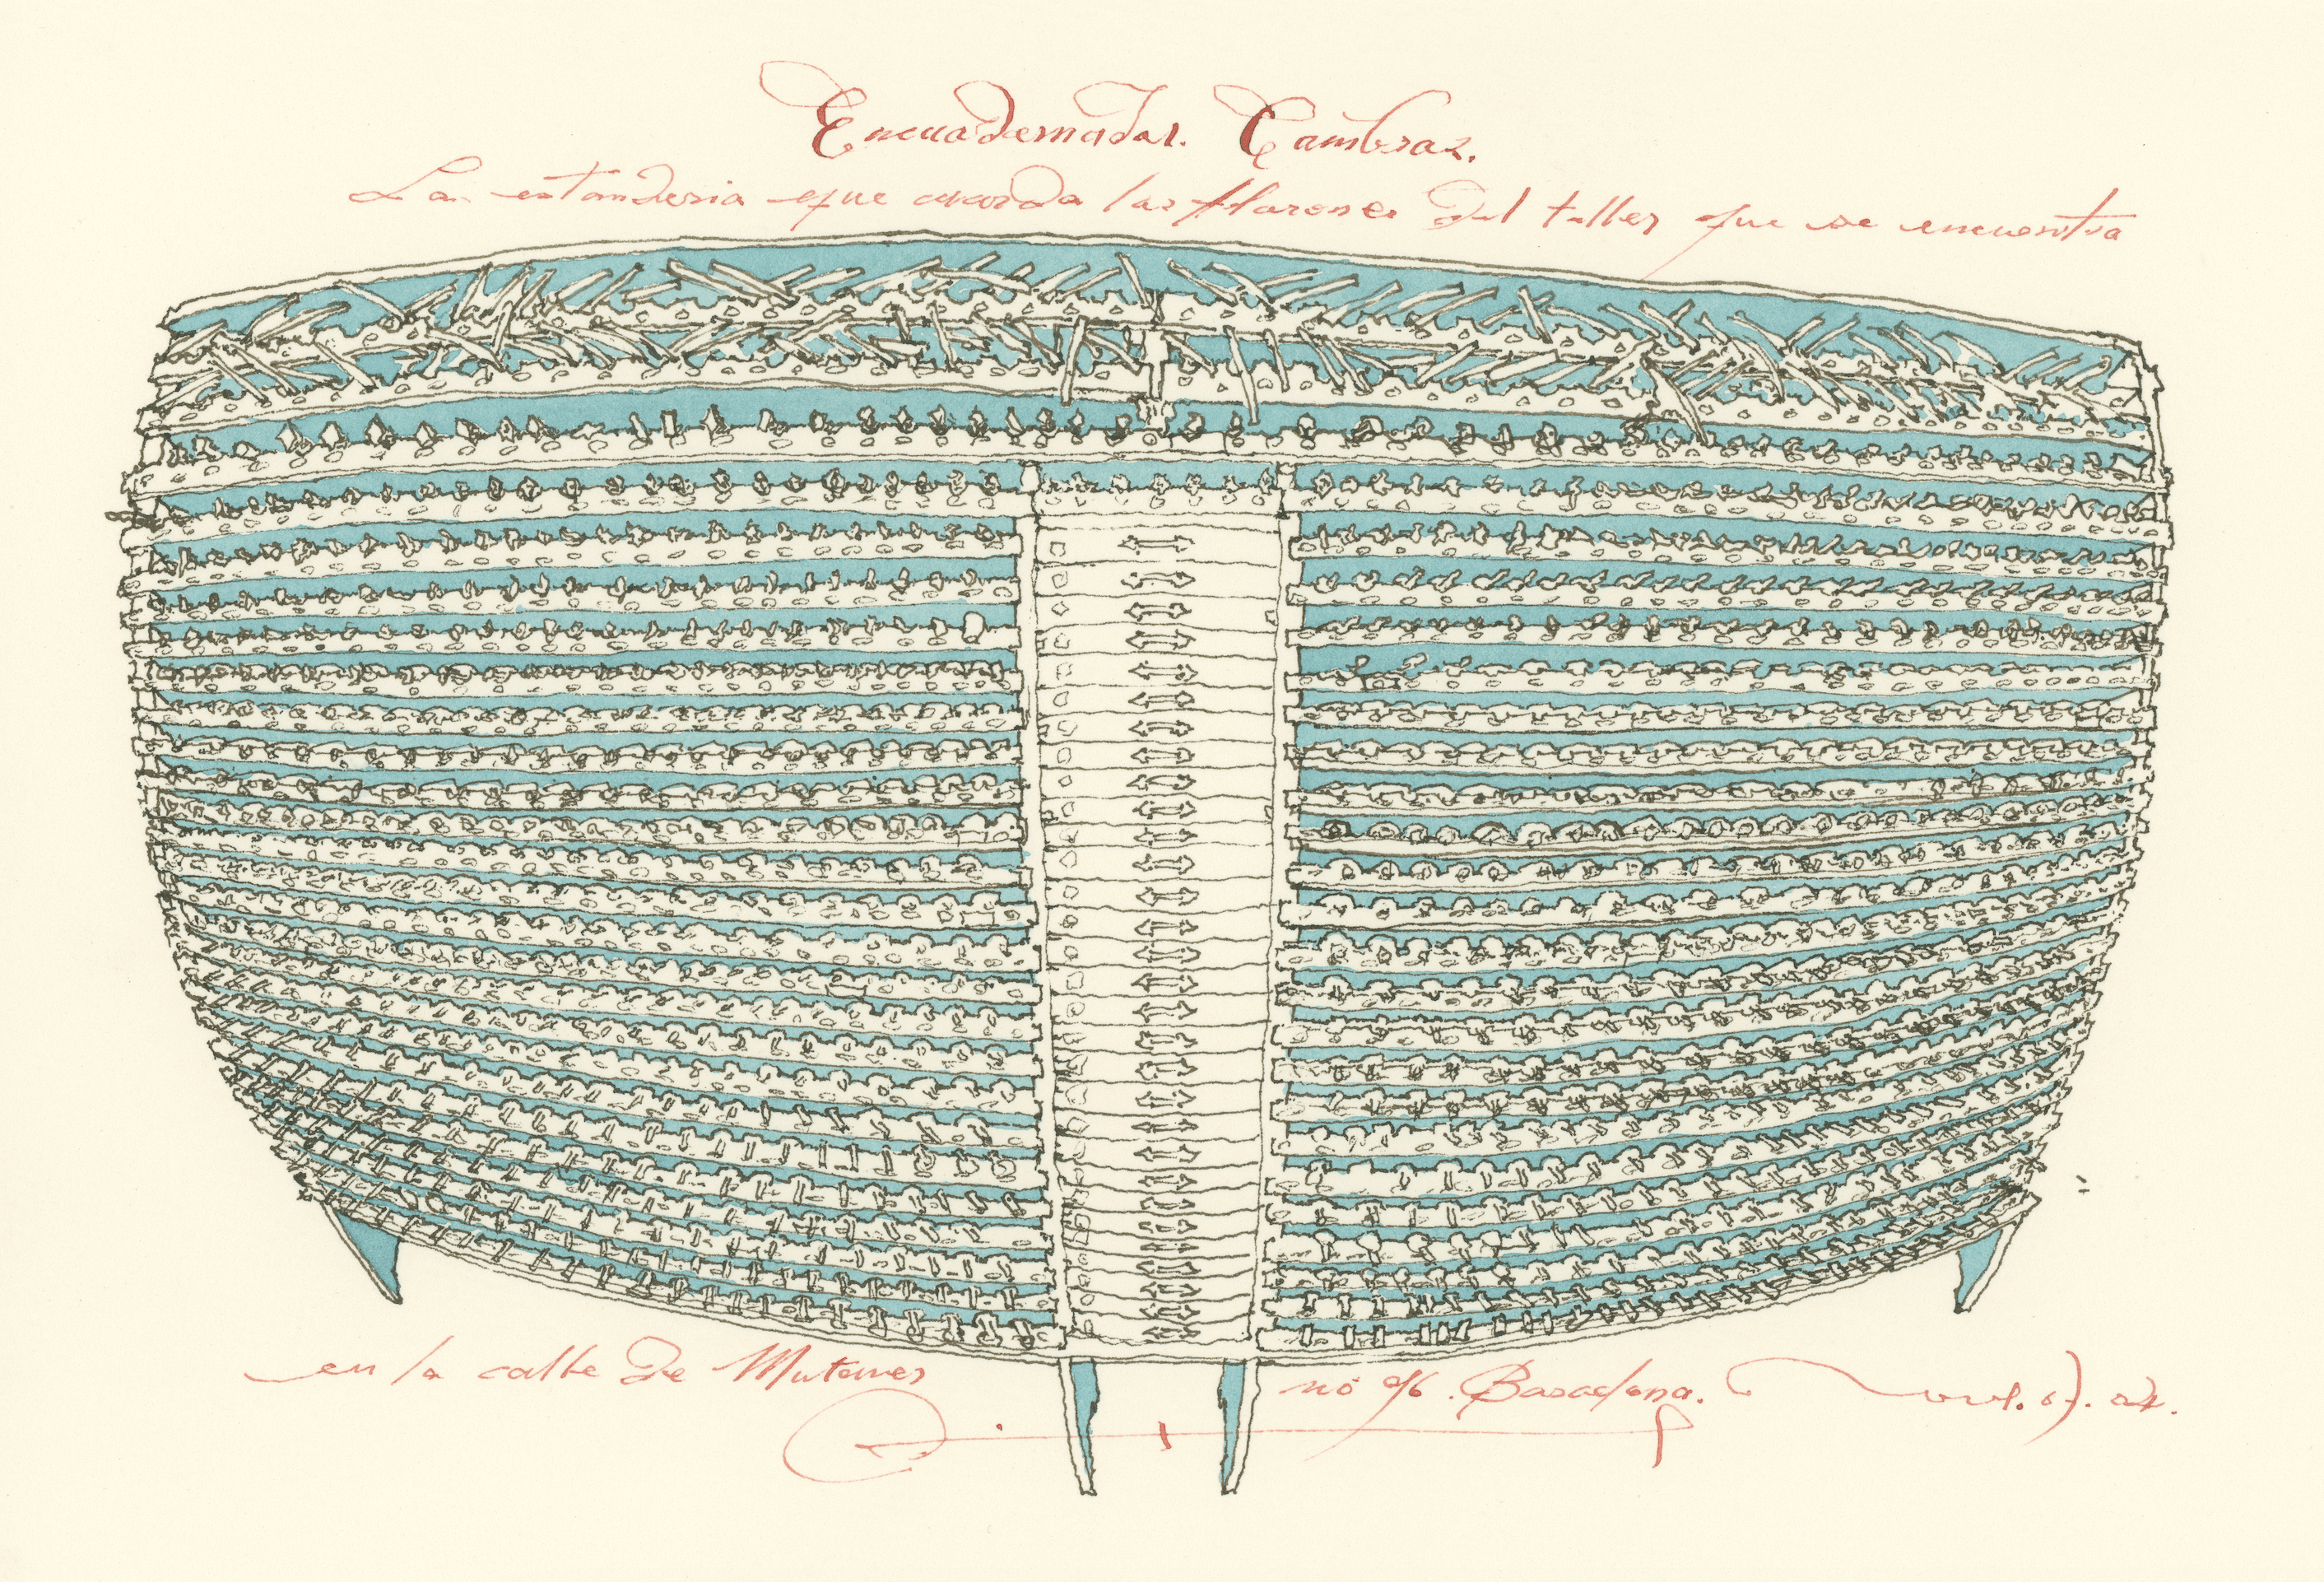 Encuadernador. Cambras.
La estanderia que guarda los florones del taller que se encuentra
en la calle de Mutaner nó 96. Barcelona.